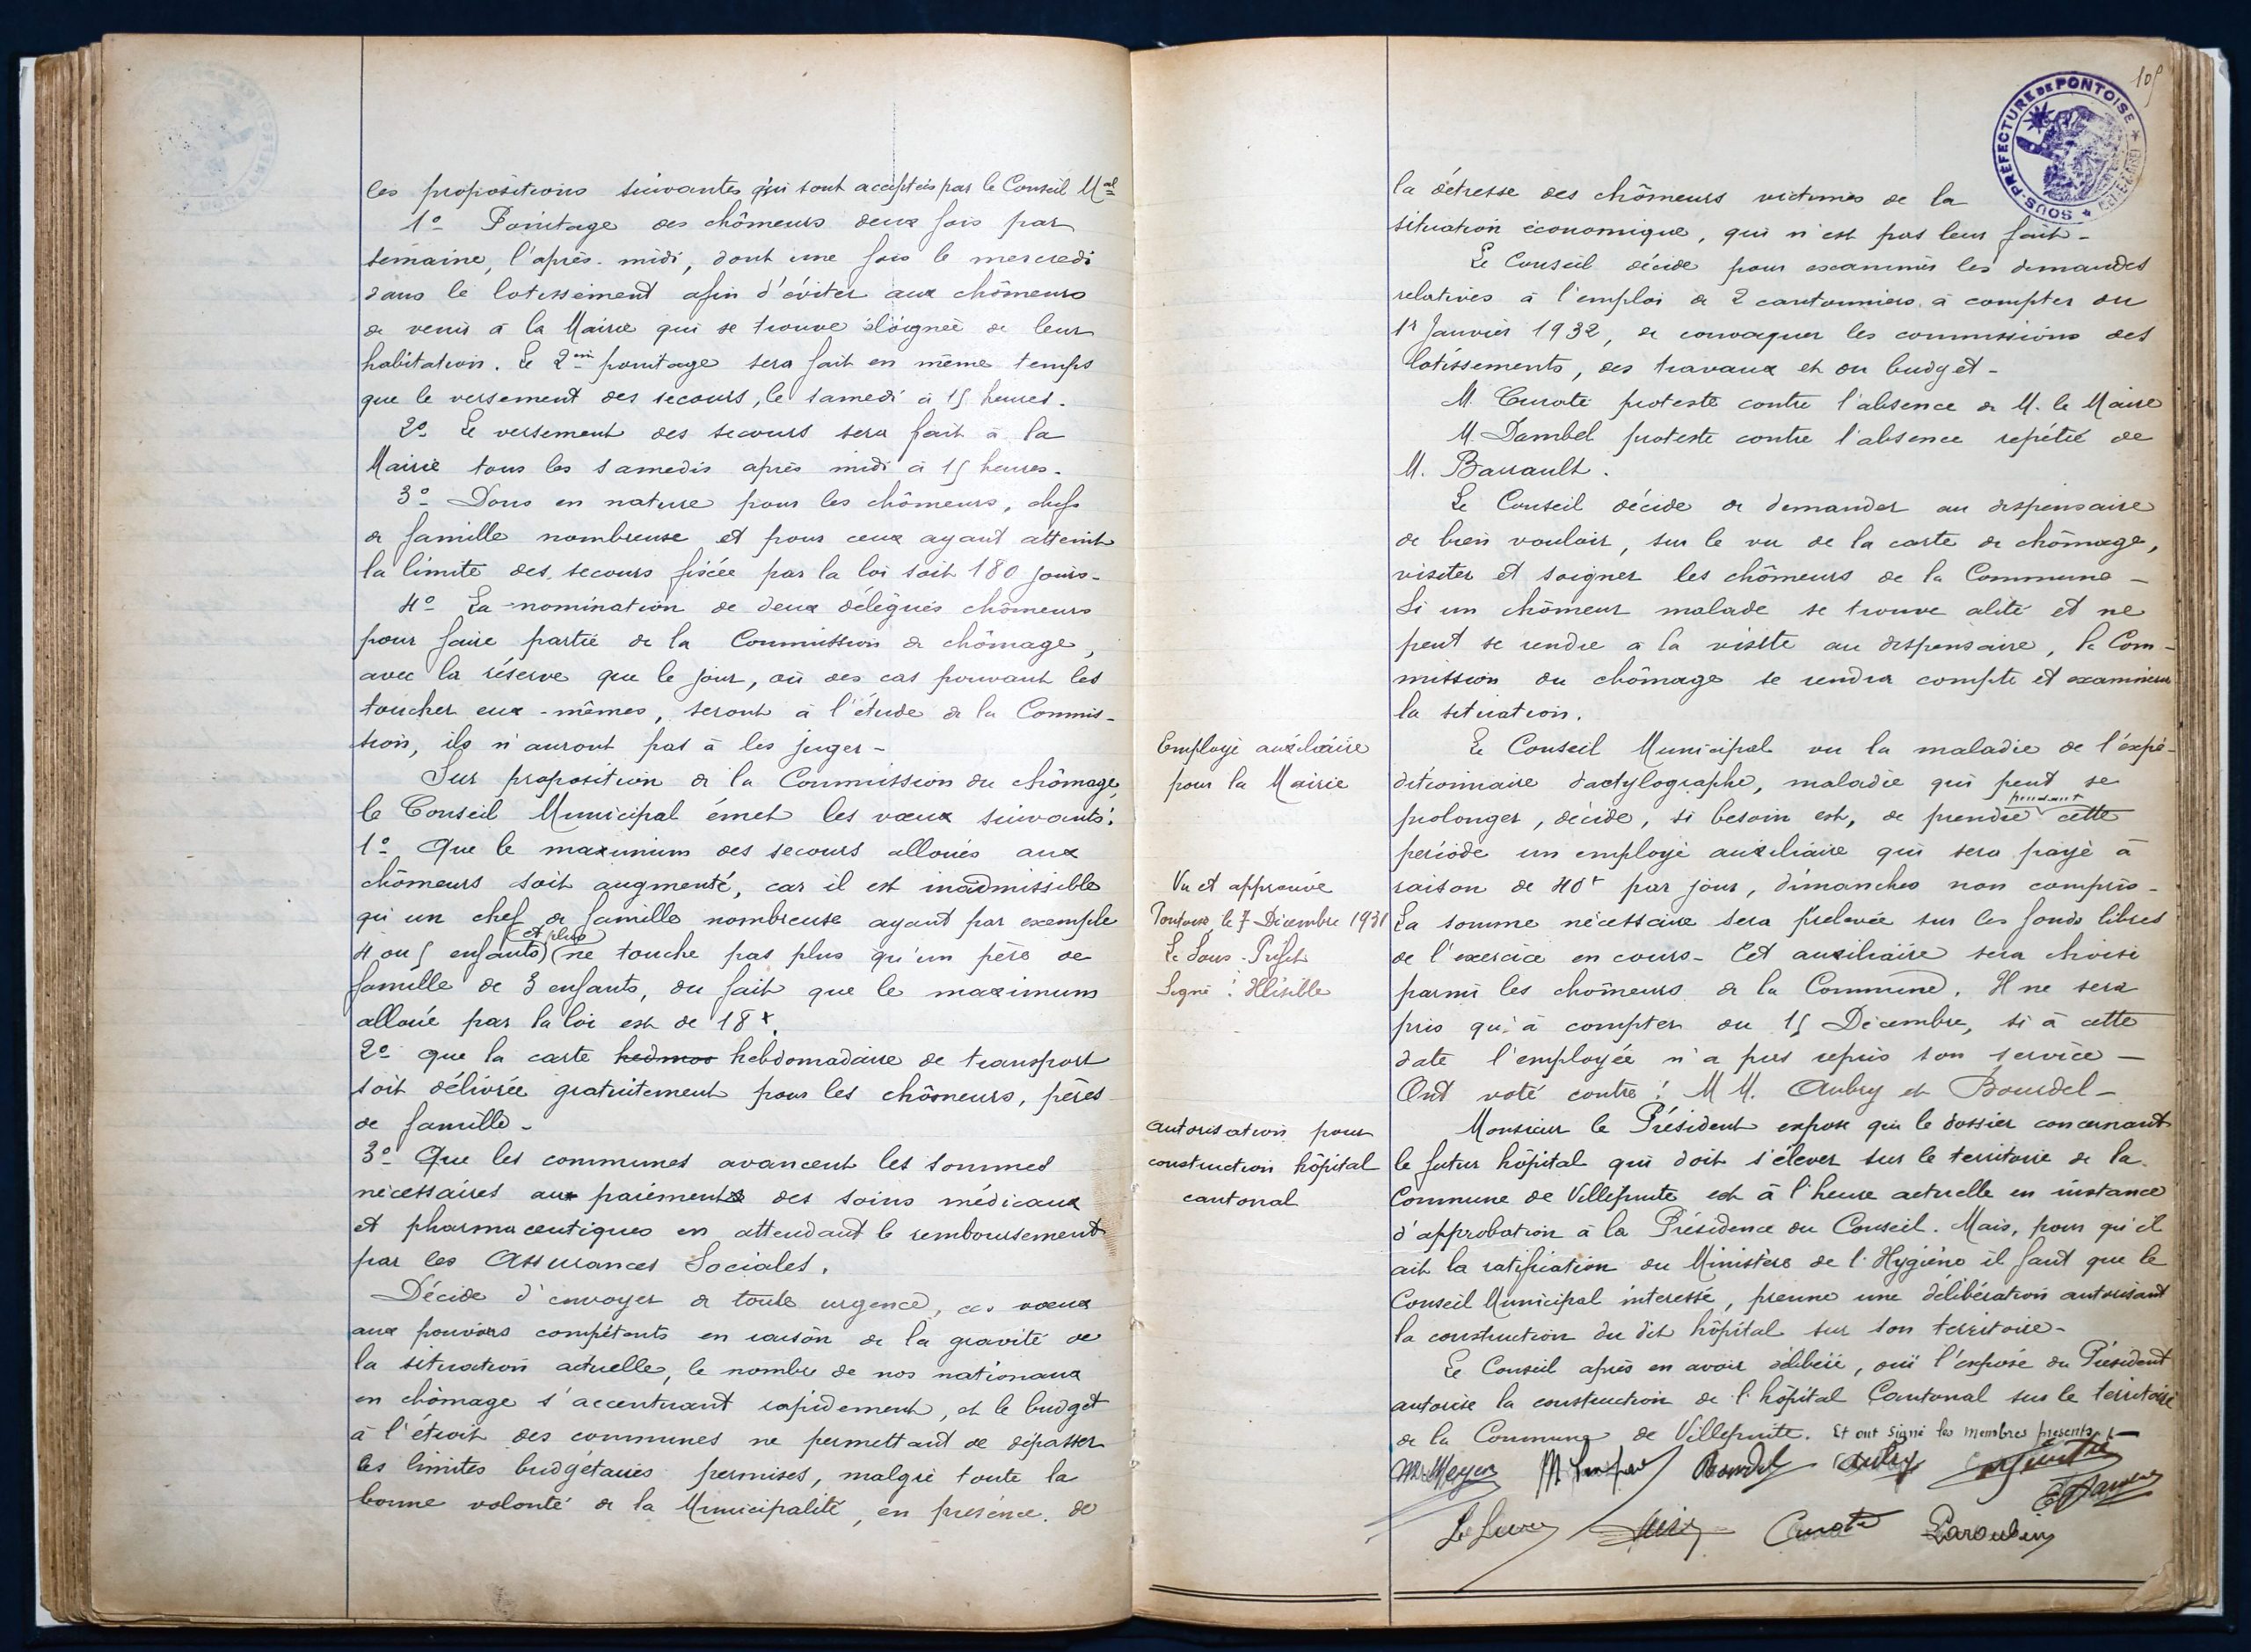 les propositions suivantes qui sont acceptées par le Conseil Mal
1º Pointage des chômeurs deux fois par
semaine, l'après-midi, dont une fois le mercredi
dans le lotissement afin d'éviter aux chômeurs
de venir à la Mairie qui se trouve éloignée de leur
habitation. Le 2me pointage sera fait en même temps
que le versement des secours, le samedi à 15 heures.
2º Le versement des secours sera fait à la
Mairie tous les samedis après midi à 15 heures.
3º Dons en nature pour les chômeurs, chefs
de famille nombreuse et pour ceux ayant atteint
la limite des secours fixée par la loi soit 180 jours.
4º La nomination de deux délégués chômeurs
pour faire partie de la Commission de chômage,
avec la réserve que le jour, où des cas pouvant les
toucher eux-mêmes, seront à l'étude de la Commis-
sion, ils n'auront pas à les juger-
Sur proposition de la Commission du chômage,
le Conseil Municipal émet les vœux suivants:
1º Que le maximum des secours alloués aux
chômeurs soit augmenté, car il est inadmissible
qu'un chef de famille nombreuse ayant par exemple
4 ou 5 enfants (et plus) ne touche pas plus qu'un père de
famille de 3 enfants, du fait que le maximum
alloué par la loi est de 18f.
2º que la carte hedmos hebdomadaire de transport
soit délivrée gratuitement pour les chômeurs, pères
de famille-
3º Que les communes avancent les sommes
nécessaires aux paiements des soins médicaux
et pharmaceutiques en attendant le remboursement
par les Assurances Sociales.
Décide d'envoyer de toute urgence, ces vœux
aux pouvoirs compétents en raison de la gravité de
la situation actuelle, le nombre de nos nationaux
en chômage s'accentuant rapidement, et le budget
à l'étroit des communes ne permettant de dépasser
les limites budgétaires permises, malgré toute la
bonne volonté de la Municipalité, en présence de
105
SOUS-PRÉFECTURE DE PONTOISE
la détresse des chômeurs victimes de la
situation économique, qui n'est pas leur fait-
Le Conseil décide pour examiner les demandes
relatives à l'emploi de 2 cantonniers à compter du
1r Janvier 1932, de convoquer les commissions des
lotissements, des travaux et du budget-
M. Curote proteste contre l'absence de M. le Maire
M. Dambel proteste contre l'absence répétée de
M. Barrault.
Le Conseil décide de demander au dispensaire
de bien vouloir, sur le vu de la carte de chômage,
visiter et soigner les chômeurs de la Commune-
Si un chômeur malade se trouve alité et ne
peut se rendre à la visite au dispensaire, la Com-
mission du chômage se rendra compte et examinera
la situation.
Employé auxiliaire
pour la Mairie
Le Conseil Municipal vu la maladie de l'expé-
ditionnaire dactylographe, maladie qui peut se
prolonger, décide, si besoin est, de prendre pendant cette
période un employé auxiliaire qui sera payé à
raison de 40f par jour, dimanches non compris-
La somme nécessaire sera prélevée sur les fonds libres
de l'exercice en cours- Cet auxiliaire sera choisi
parmi les chômeurs de la Commune. Il ne sera
pris qu'à compter du 15 Décembre, si à cette
date l'employée n'a pas repris son service-
Ont voté contre: M M. Aubry et Bourdel-
Vu et approuvé
Pontoise, le 7 Décembre 1931
Le Sous-Préfet
Signé: Illisible
Autorisation pour
construction hôpital
cantonal
Monsieur le Président expose que le dossier concernant
le futur hôpital qui doit s'élever sur le territoire de la
Commune de Villepinte est à l'heure actuelle en instance
d'approbation à la Présidence du Conseil. Mais, pour qu'il
ait la ratification du Ministère de l'Hygiène il faut que le
Conseil Municipal intéressé, prenne une délibération autorisant
la construction du dit hôpital sur son territoire-
Le Conseil après en avoir délibéré, ouï l'exposé du Président
autorise la construction de l'hôpital Cantonal sur le territoire
de la Commune de Villepinte. Et ont signé les Membres présents-
Meyer Bourdel Aubry
Curote Paroubin